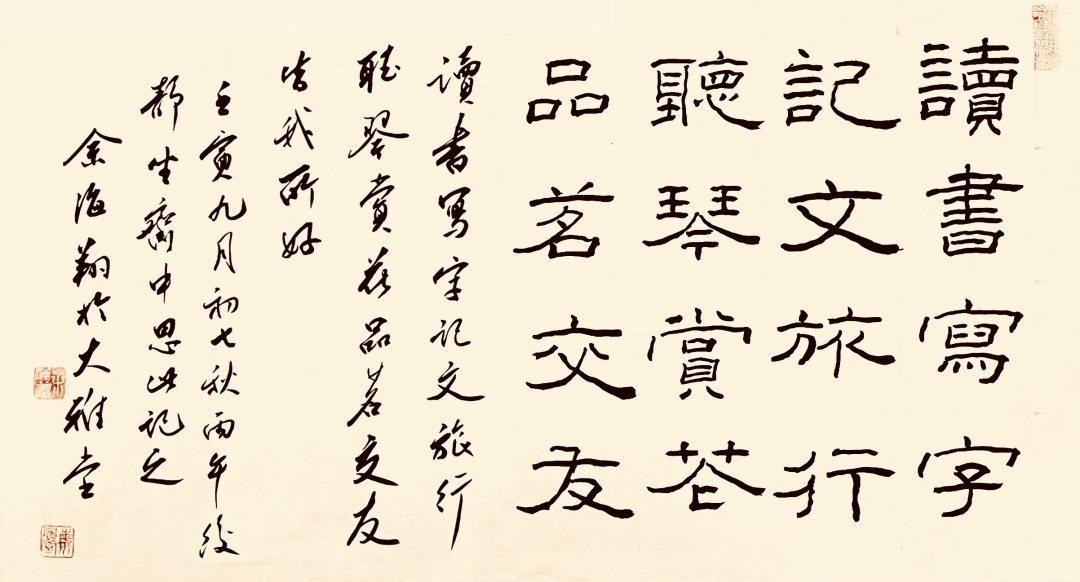 讀書寫字
記文旅行
聽琴賞花
品茗交友
讀書寫字記文旅行
聽琴賞花品茗交友
皆我所好
壬寅九月初七秋雨午後
靜坐齋中思此記之
余海翔於大雅堂